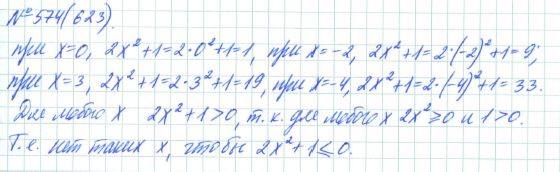 № 574 (623).
при x=0, 2x²+1=2·0²+1=1, при x=-2, 2x²+1=2·(-2)²+1=9;
при x=3, 2x²+1=2·3²+1=19, при x=-4, 2x²+1=2·(-4)²+1=33.
Для любого x 2x²+1>0, т.к. для любого x 2x²≥0 и 1>0.
Т.е. нет таких x, чтобы 2x²+1≤0.